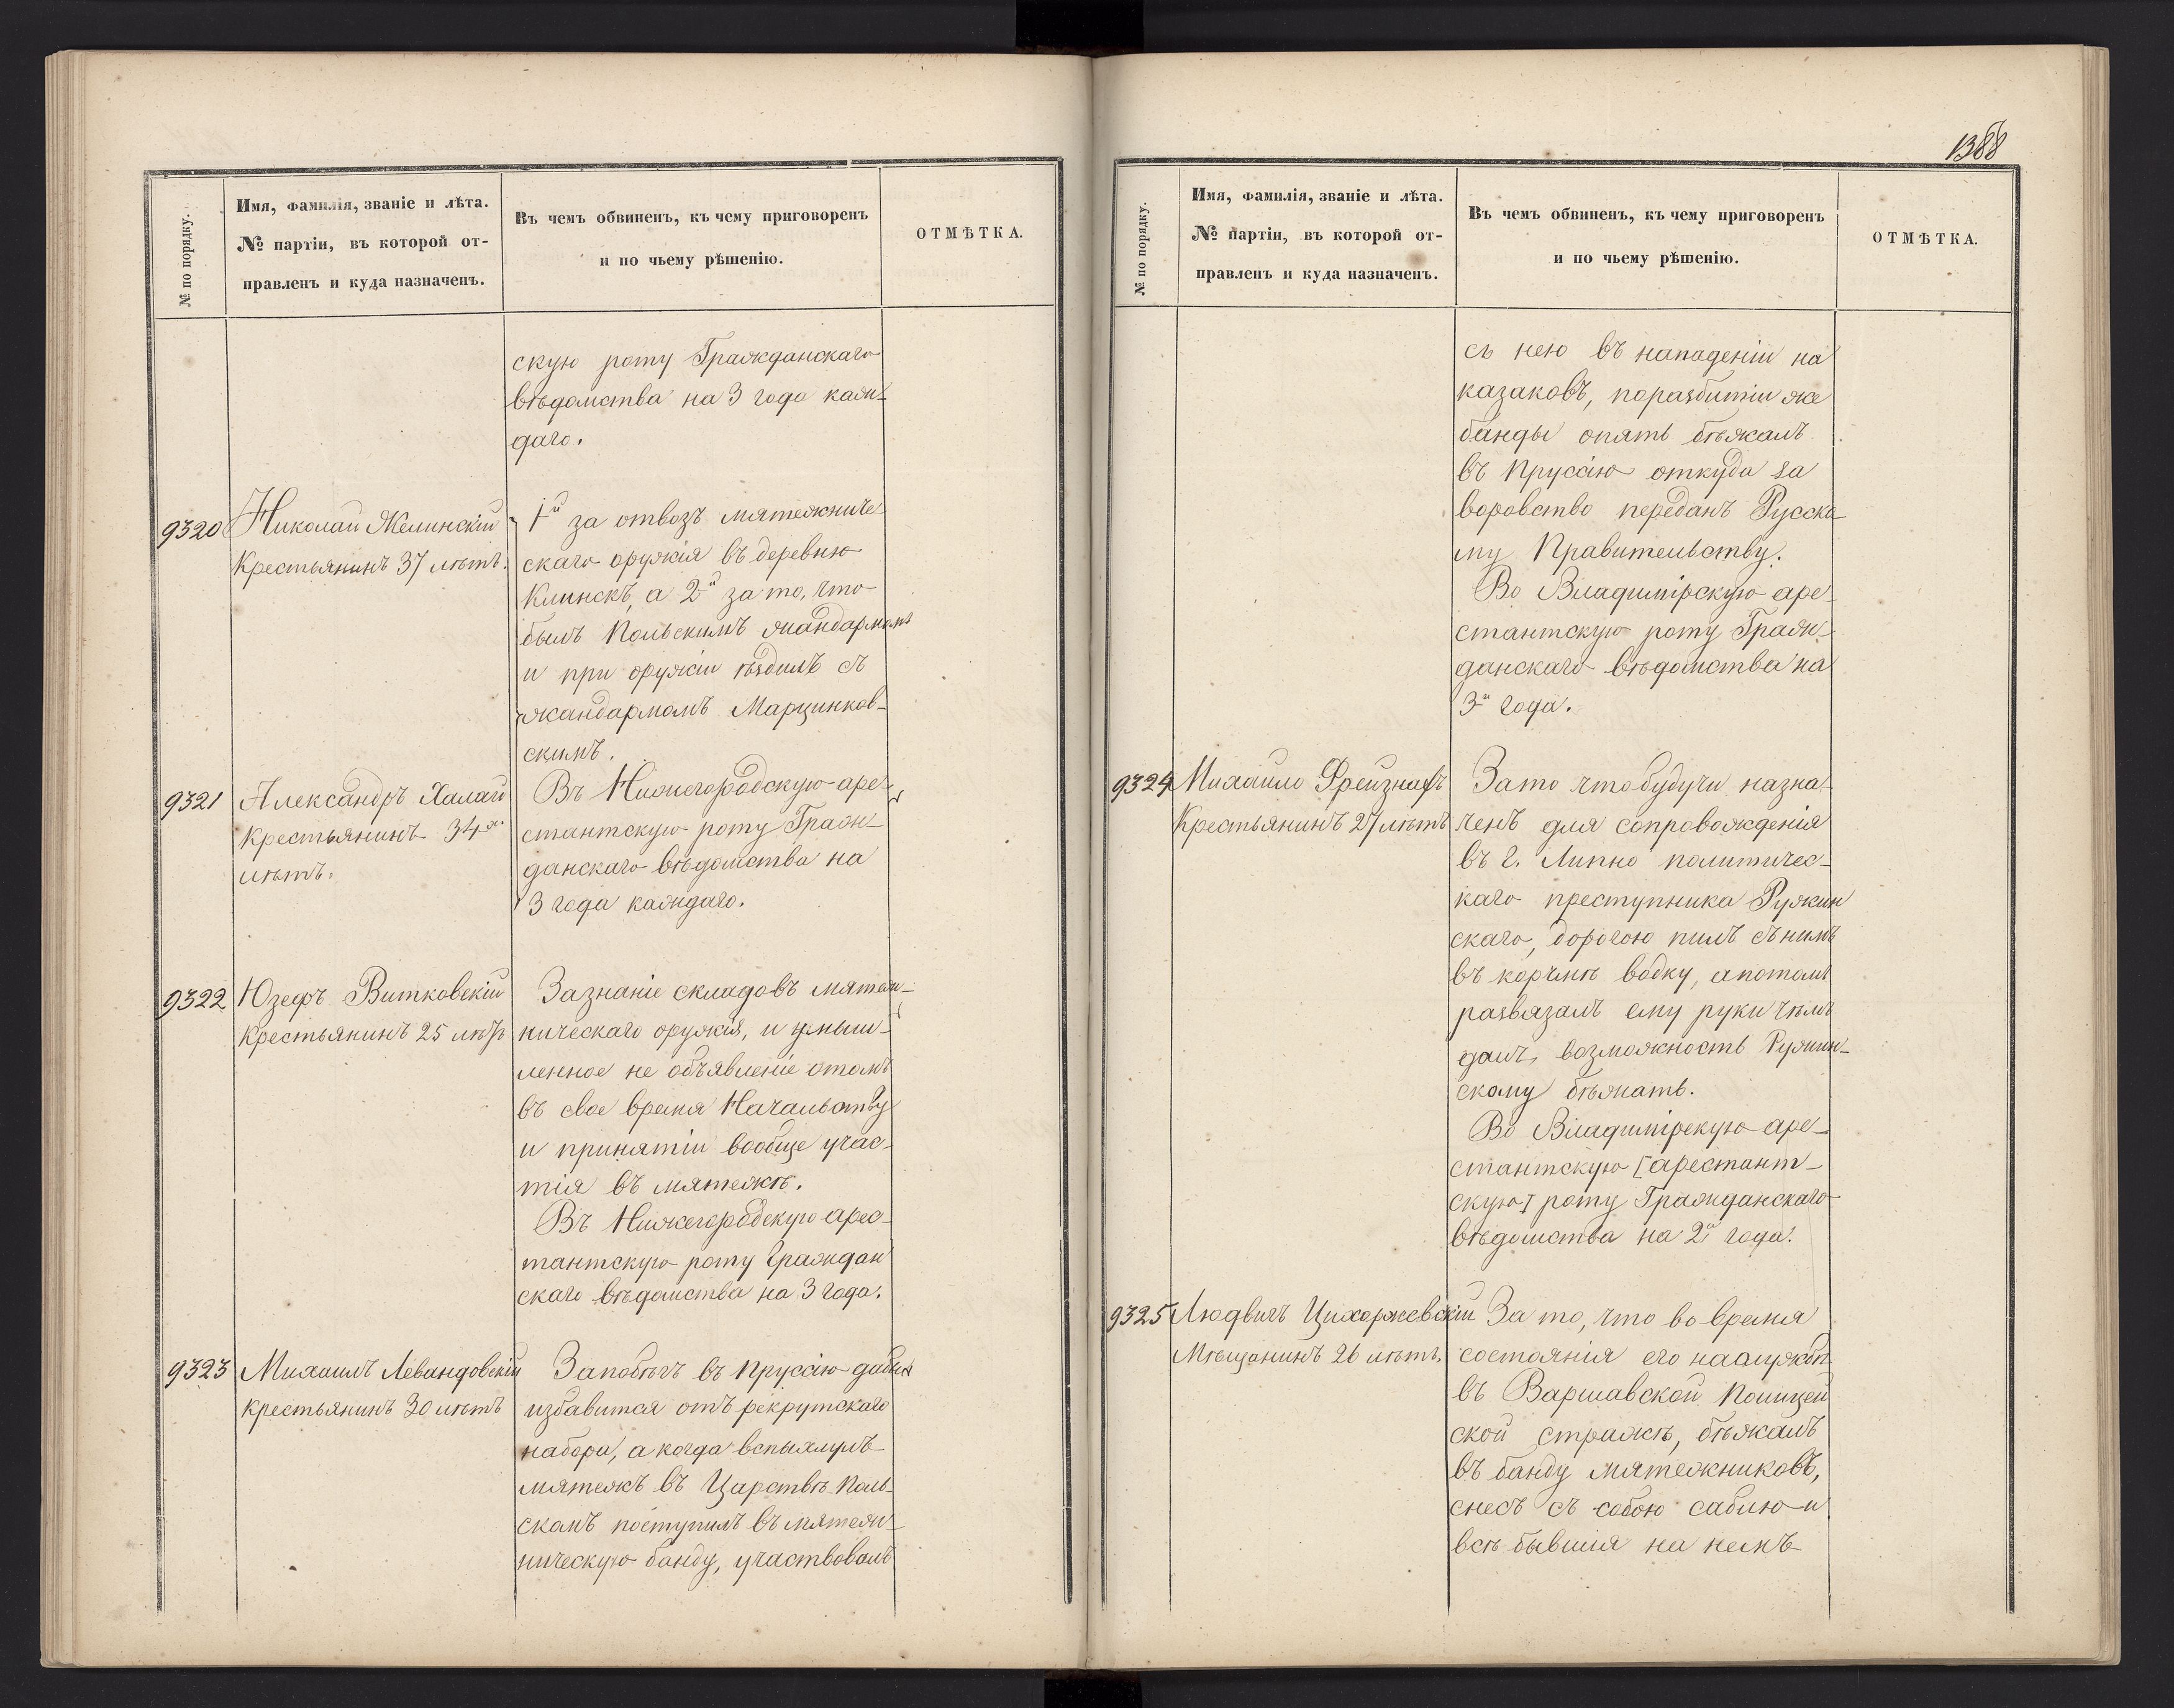 № по порядку.
Имя, фамилія, званіе и лѣта.
№ партіи, въ которой от-
правленъ и куда назначенъ.
Въ чемъ обвиненъ, къ чему приговоренъ
и по чьему рѣшенію.
ОТМѢТКА.
скую роту Гражданскаго
вѣдомства на 3 года каж-
даго.
9320 Николай Желинскій
Крестьянинъ 37 лѣтъ.
1й за отвозъ мятежниче
скаго оружія въ деревню
Клинскъ, а 2й за то, что
былъ Польскимъ жандармомъ
и при оружіи ѣздилъ съ
жандармомъ Марцинков-
скимъ.
9321 Александръ Халай
Крестьянинъ 34х
лѣтъ.
Въ Нижегородскую аре-
стантскую роту Граж-
данскаго вѣдомства на
3 года каждаго.
9322 Юзефъ Витковскій
Крестьянинъ 25 лѣтъ
За знаніе складовъ мятеж-
ническаго оружія, и умыш-
ленное не объявленіе о томъ
въ свое время Начальству
и принятіи вообще учас-
тія въ мятежѣ.
Въ Нижегородскую арес-
тантскую роту Граждан
скаго вѣдомства на 3 года.
9323 Михаилъ Левандовскій
Крестьянинъ 30 лѣтъ
За побѣгъ въ Пруссію дабы
избавится отъ рекрутскаго
набора, а когда вспыхнулъ
мятежъ въ Царствѣ Поль-
скомъ поступилъ въ мятеж-
ническую банду, участвовалъ
1388
№ по порядку.
Имя, фамилія, званіе и лѣта.
№ партіи, въ которой от-
правленъ и куда назначенъ.
Въ чемъ обвиненъ, къ чему приговоренъ
и по чьему рѣшенію.
ОТМѢТКА.
съ нею въ нападеніи на
казаковъ, поразбитіи же
банды опять бѣжалъ
въ Пруссію откуда за
воровство переданъ Русско-
му Правительству.
Во Владимірскую аре-
стантскую роту Граж-
данскаго вѣдомства на
3и года.
9324 Михаилъ Фрейзнафъ
Крестьянинъ 27 лѣтъ
За то что будучи назна-
ченъ для сопровожденія
въ г. Липно политичес-
каго преступника Ружин
скаго, дорогою пилъ съ нимъ
въ корчмѣ водку, а потомъ
развязалъ ему руки чѣмъ
далъ возможность Ружин-
скому бѣжать.
Во Владимірскую аре-
стантскую [арестант-
скую] роту Гражданскаго
вѣдомства на 2и года.
9325 Людвигъ Цихоржевскій
Мѣщанинъ 26 лѣтъ.
За то, что во время
состоянія его на службѣ
въ Варшавской Полицей
ской стражѣ, бѣжалъ
въ банду мятежниковъ,
снесъ съ собою саблю и
всѣ бывшія на немъ